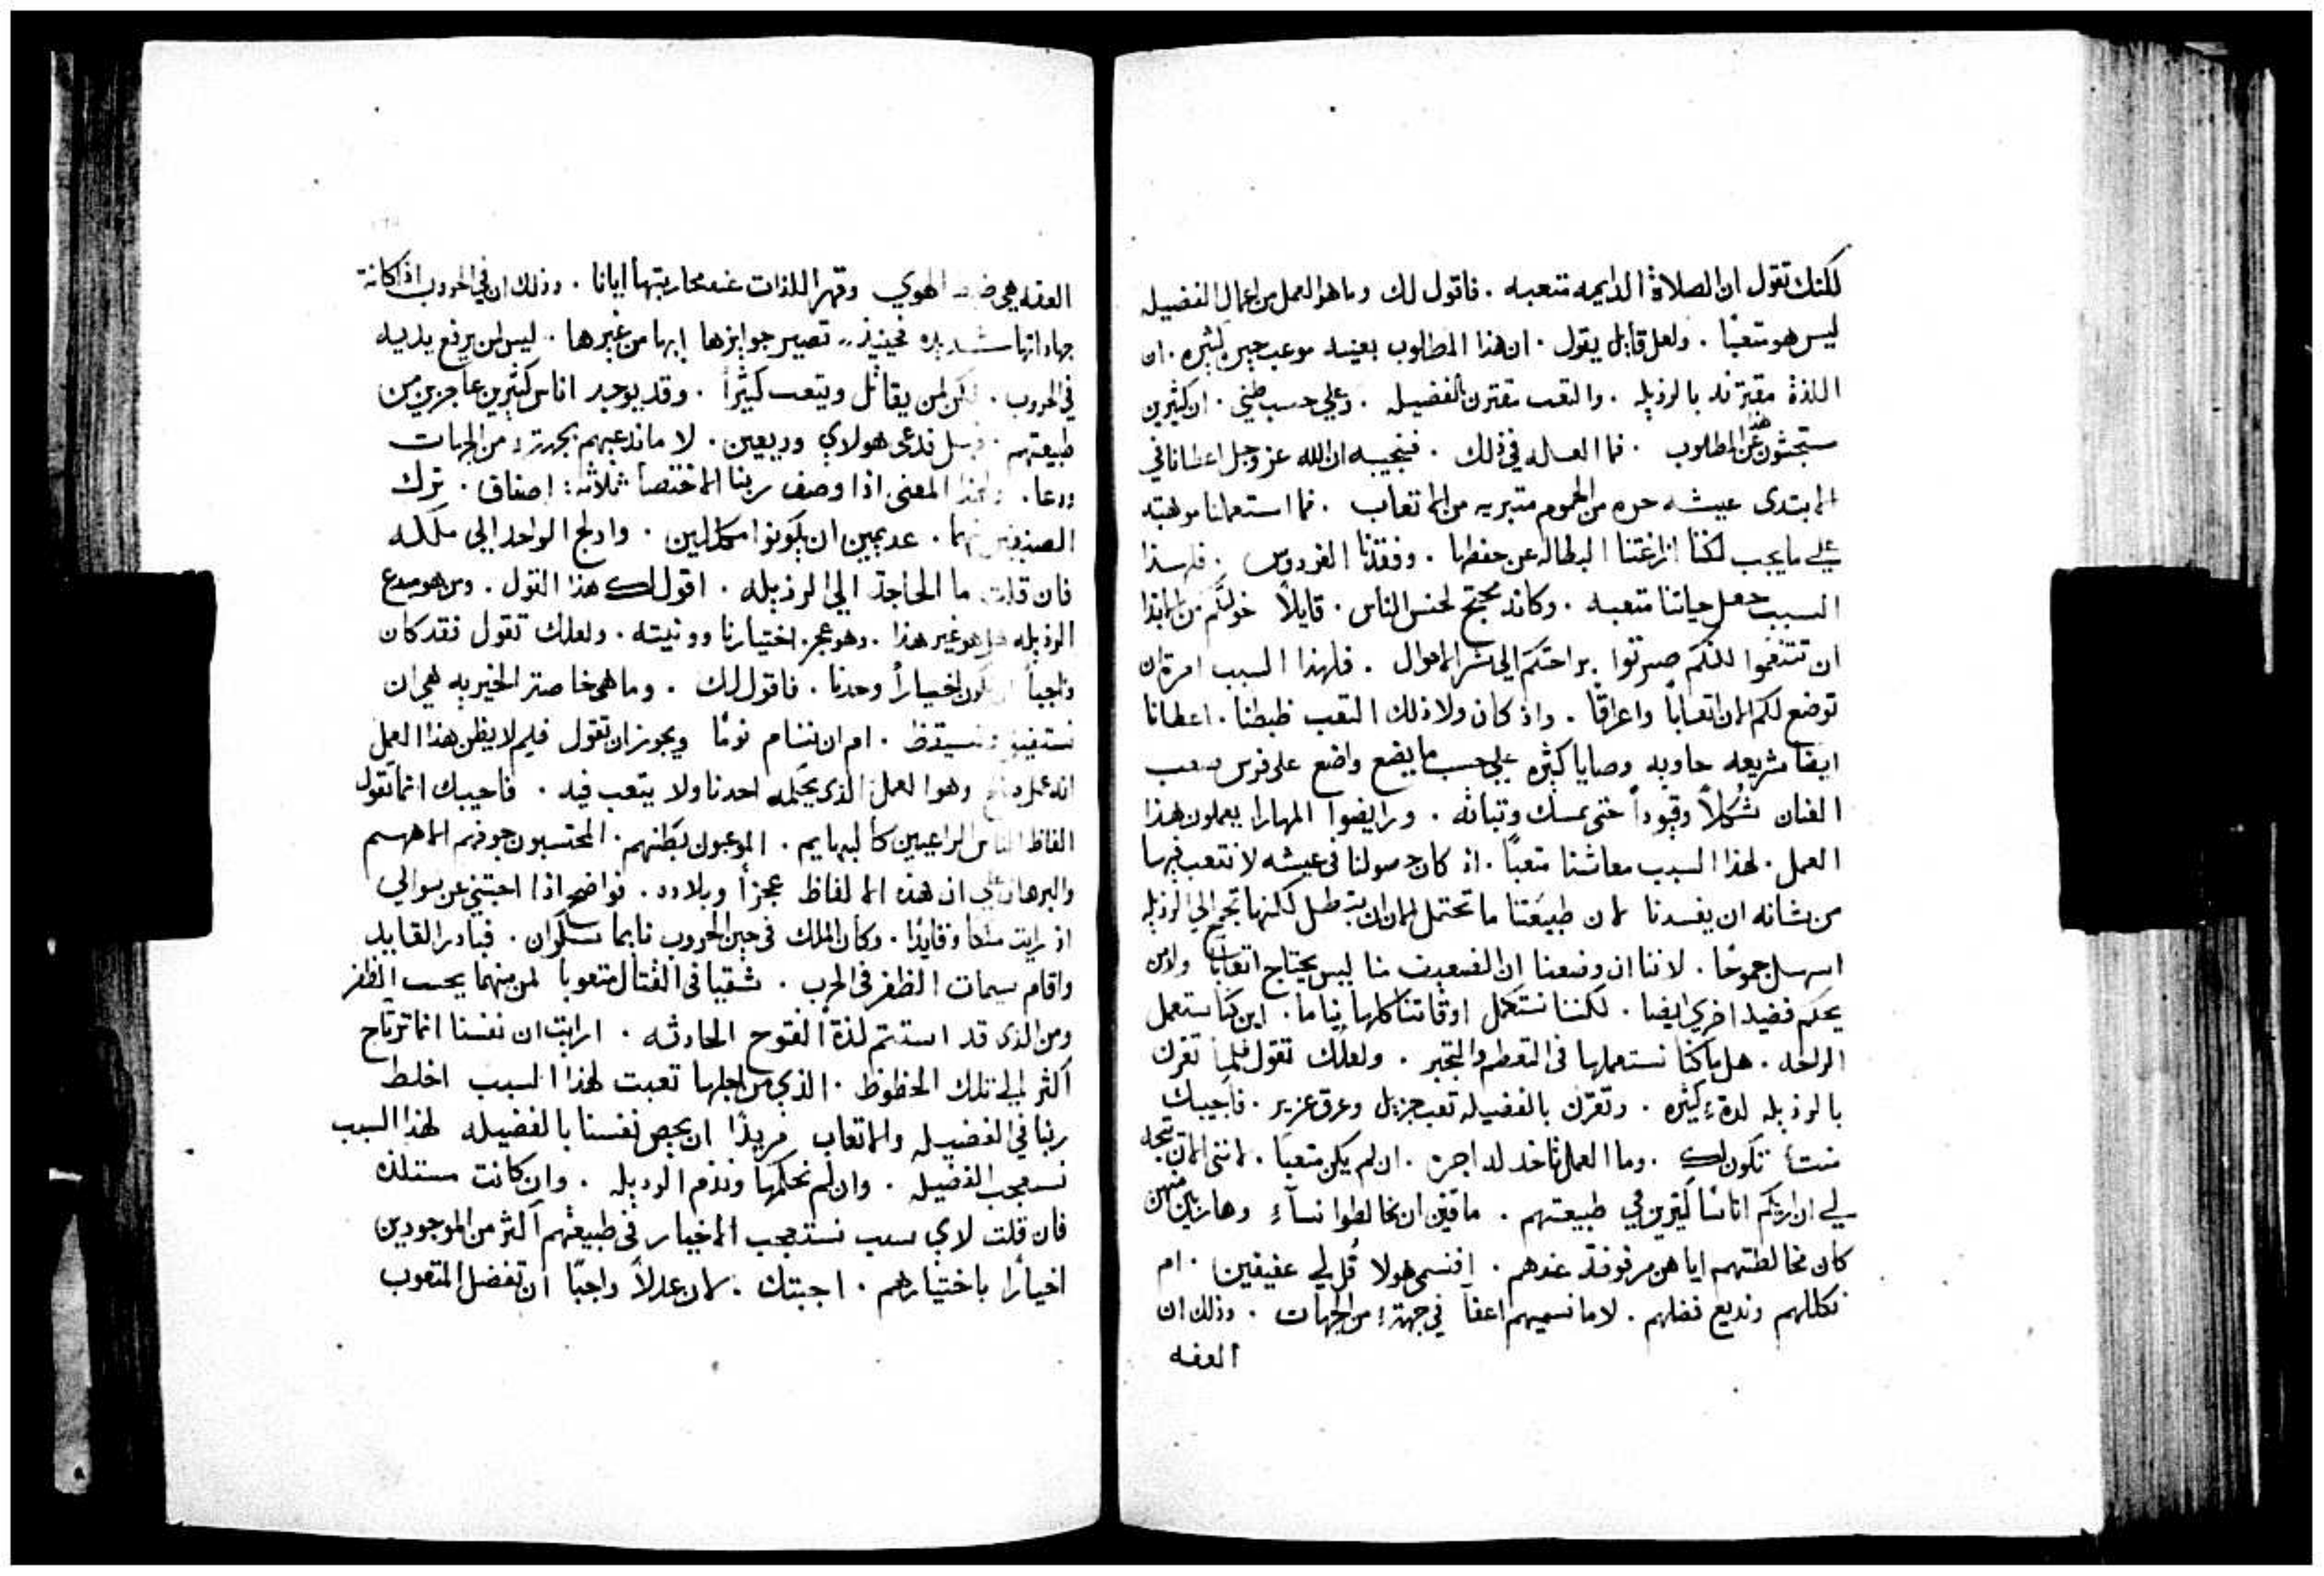 لكنك تقول ان الصلاة الدايمه متعبه . فاقول لك وما هو العمل من اعمال الفضيله
ليس هو متعبًا . ولعل قايل يقول . ان هذا المطلوب بعينه موعب حيره كثيره . ان
اللذة مقترنه بالرذيله . والتعب مقترن بالفضيله . وعلي حسب ظني . ان كثيرين
ستبحثون عن هذا المطلوب . فما العله في ذلك . فنجيبه ان الله عز وجل اعطانا في
الابتدي عيشه حره من الهموم متبريه من الاتعاب . فما استعملنا موهبته
علي ما يجب لكننا ازاغتنا البطاله عن حفظها . وفقدنا الفردوس . فلهذا
السبب جعل حياتنا متعبه . وكانه محتج لجنس الناس . قايلاً خولتكم من الابتدا
ان تتنعموا لكنكم صرتوا براحتكم الي شر الاحوال . فلهذا السبب امرت ان
توضع لكم الان اتعابًا واعراقًا . واذ كان ولا ذلك التعب ظبطنا . اعطانا
ايضا شريعه حاويه وصايا كثيره علي حسب ما يضع واضع على فرس صعب
العنان شُكلاً وقيوداً حتى يمسك وثباته . ورايضوا المهارا يعملون هذا
العمل . لهذا السبب معاشنا متعبًا . اذ كان حصولنا في عيشه لا نتعب فيها
من شانه ان يفسدنا لان طبيعتنا ما تحتمل الان ان تبطل لكنها تجمح الي الرذيله
اسهل جموحًا . لاننا ان وضعنا ان العفيف منا ليس يحتاج اتعابًا ولا من
يحكم فضيله اخري ايضا . لكننا نستكمل اوقاتنا كلها نياما . اين كنا نستعمل
الراحه . هل ما كنا نستعملها في التعظم والتجبر . ولعلك تقول فلما تقرن
بالرذيله لذة كثيره . وتقرن بالفضيله تعب جزيل وعرق غزير . فاجيبك
منتا تكون لك . وما العمل تاخد له اجره . ان لم يكن متعبًا . لانني الان يتجه
لي ان اريكم اناسًا كثيرين في طبيعتهم . ماقتين ان يخالطوا نسآء وهاربين منهن
كان مخالطتهم اياهن مرفوضه عندهم . افنسمي هولا قُل لي عفيفين . ام
نكللهم ونديع فضلهم . لا ما نسميهم اعفآ في جهة من الجهات . وذلك ان
العفه
العفه هي ضبط الهوي وقهر اللذات عند محاربتها ايانا . وذلك ان في الحروب اذا كانة
جهاداتها شديده فحينيذ تصير جوايزها ابها من غيرها . ليس لمن يرفع يديه
في الحروب . لكن لمن يقاتل ويتعب كثيرًا . وقد يوجد اناس كثيرين عاجزين من
طبيعتهم . فهل ندعي هولاي وديعين . لا ما ندعيهم بجهة من الجهات
ودعا . ولهذا المعنى اذا وصف ربنا الاختصا ثلاثة اصناف . ترك
الصنفين منهما . عديمين ان يكونوا مكللين . وادلج الواحد الي ملكه
فان قلت ما الحاجة الي الرذيله . اقول لك هذا القول . ومن هو مبدع
الرذيله هل هو غير هذا . وهو عجز اختيارنا وونيته . ولعلك تقول فقد كان
واجباً ان نكون اخياراً وحدنا . فاقول لك . وما هي خاصة الخيريه هي ان
نستفيق ونستيقظ . ام ان ننام نومًا ويجوز ان تقول فلم لا يظن هذا العمل
انه عمل صالح وهوا العمل الذي يحكمه احدنا ولا يتعب فيه . فاجيبك انما تقول
الفاظ الناس الراعيين كالبهايم . الموعبون بطنهم . المحتسبون جوفهم الاههم
والبرهان علي ان هذه الالفاظ عجزاً وبلاده . نواضح اذا اجبتني عن سوالي
اذ رايت ملكا وقايدًا . وكان الملك في حين الحروب نايما سكران . فبادر القايد
واقام سمات الظفر في الحرب . شقيا في القتال متعوباً لمن منهما يحسب الظفر
ومن الذي قد استتم لذة الفتوح الحادثه . ارايت ان نفسنا انما ترتاح
اكثر الي تلك الحظوظ . الذي من اجلها تعبت لهذا السبب اخلط
ربنا في الفضيله والاتعاب مريدًا ان يخص نفسنا بالفضيله لهذا السبب
نستعجب الفضيله . وان لم نحكمها ونذم الرديله . وان كانت مستلذه
فان قلت لاي سبب نستعجب الاخيار في طبيعتهم اكثر من الموجودين
اخيارًا باختيارهم . اجبتك . لان عدلاً واجبًا ان تفضل المتعوب